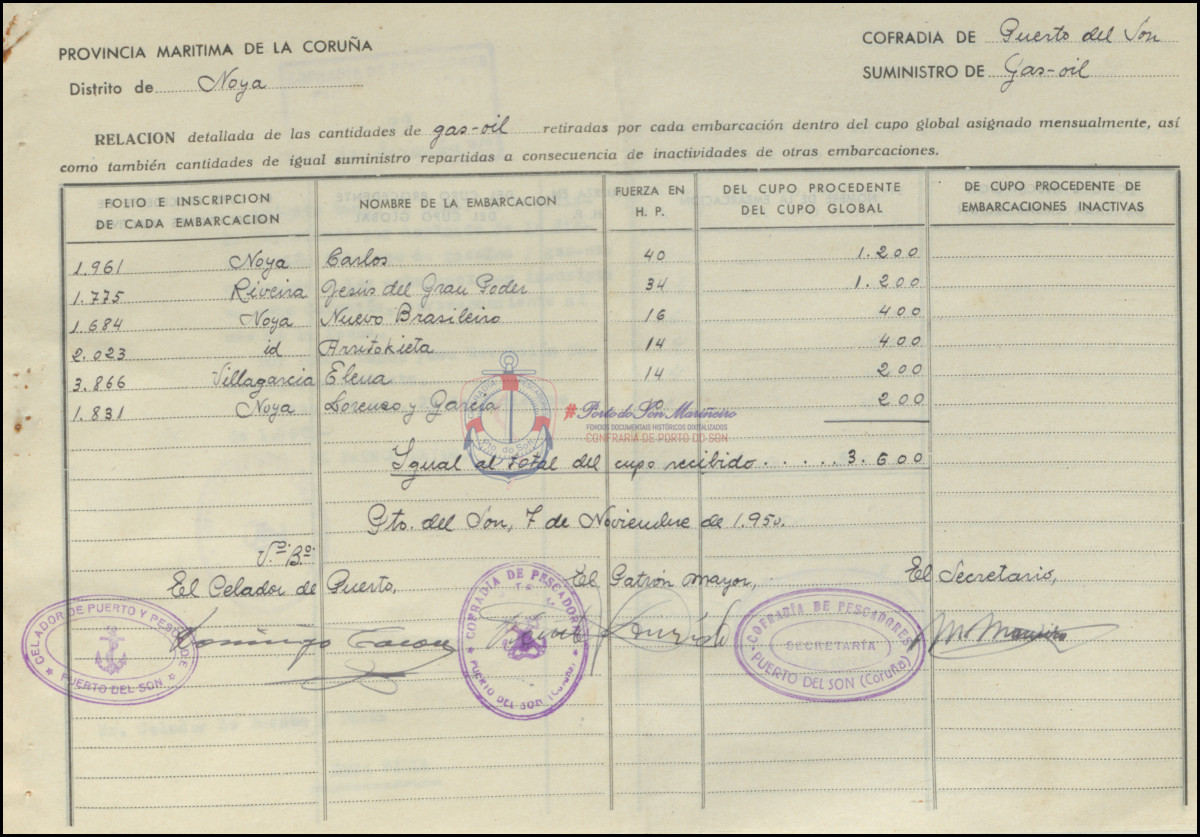 PROVINCIA MARITIMA DE LA CORUÑA
COFRADIA DE Puerto del Son
Distrito de Noya
SUMINISTRO DE Gas-oil
RELACION detallada de las cantidades de gas-oil retiradas por cada embarcación dentro del cupo global asignado mensualmente, así
como también cantidades de igual suministro repartidas a consecuencia de inactividades de otras embarcaciones.
FOLIO E INSCRIPCION DE CADA EMBARCACION NOMBRE DE LA EMBARCACION FUERZA EN H. P. DEL CUPO PROCEDENTE DEL CUPO GLOBAL DE CUPO PROCEDENTE DE EMBARCACIONES INACTIVAS
1.961 Noya Carlos 40 1.200
1.775 Riveira Jesús del Gran Poder 34 1.200
1.684 Noya Nuevo Brasileiro 16 400
2.023 id Arritokieta 14 400
3.866 Villagarcia Elena 14 200
1.831 Noya Lorenzo y García 200
#Porto do Son Mariñeiro
FONDOS DOCUMENTAIS HISTÓRICOS DIXITALIZADOS
CONFRARÍA DE PORTO DO SON
Pto. do Son
Igual al total del cupo recibido ..... 3.600
Pto. del Son, 7 de Noviembre de 1.950.
V.º B.º
El Celador de Puerto, El Patrón mayor, El Secretario,
CELADOR DE PUERTO Y PESCA
PUERTO DEL SON
Domingo
COFRADIA DE PESCADORES
PUERTO DEL SON (Coruña)
COFRADÍA DE PESCADORES
SECRETARÍA
PUERTO DEL SON (Coruña)